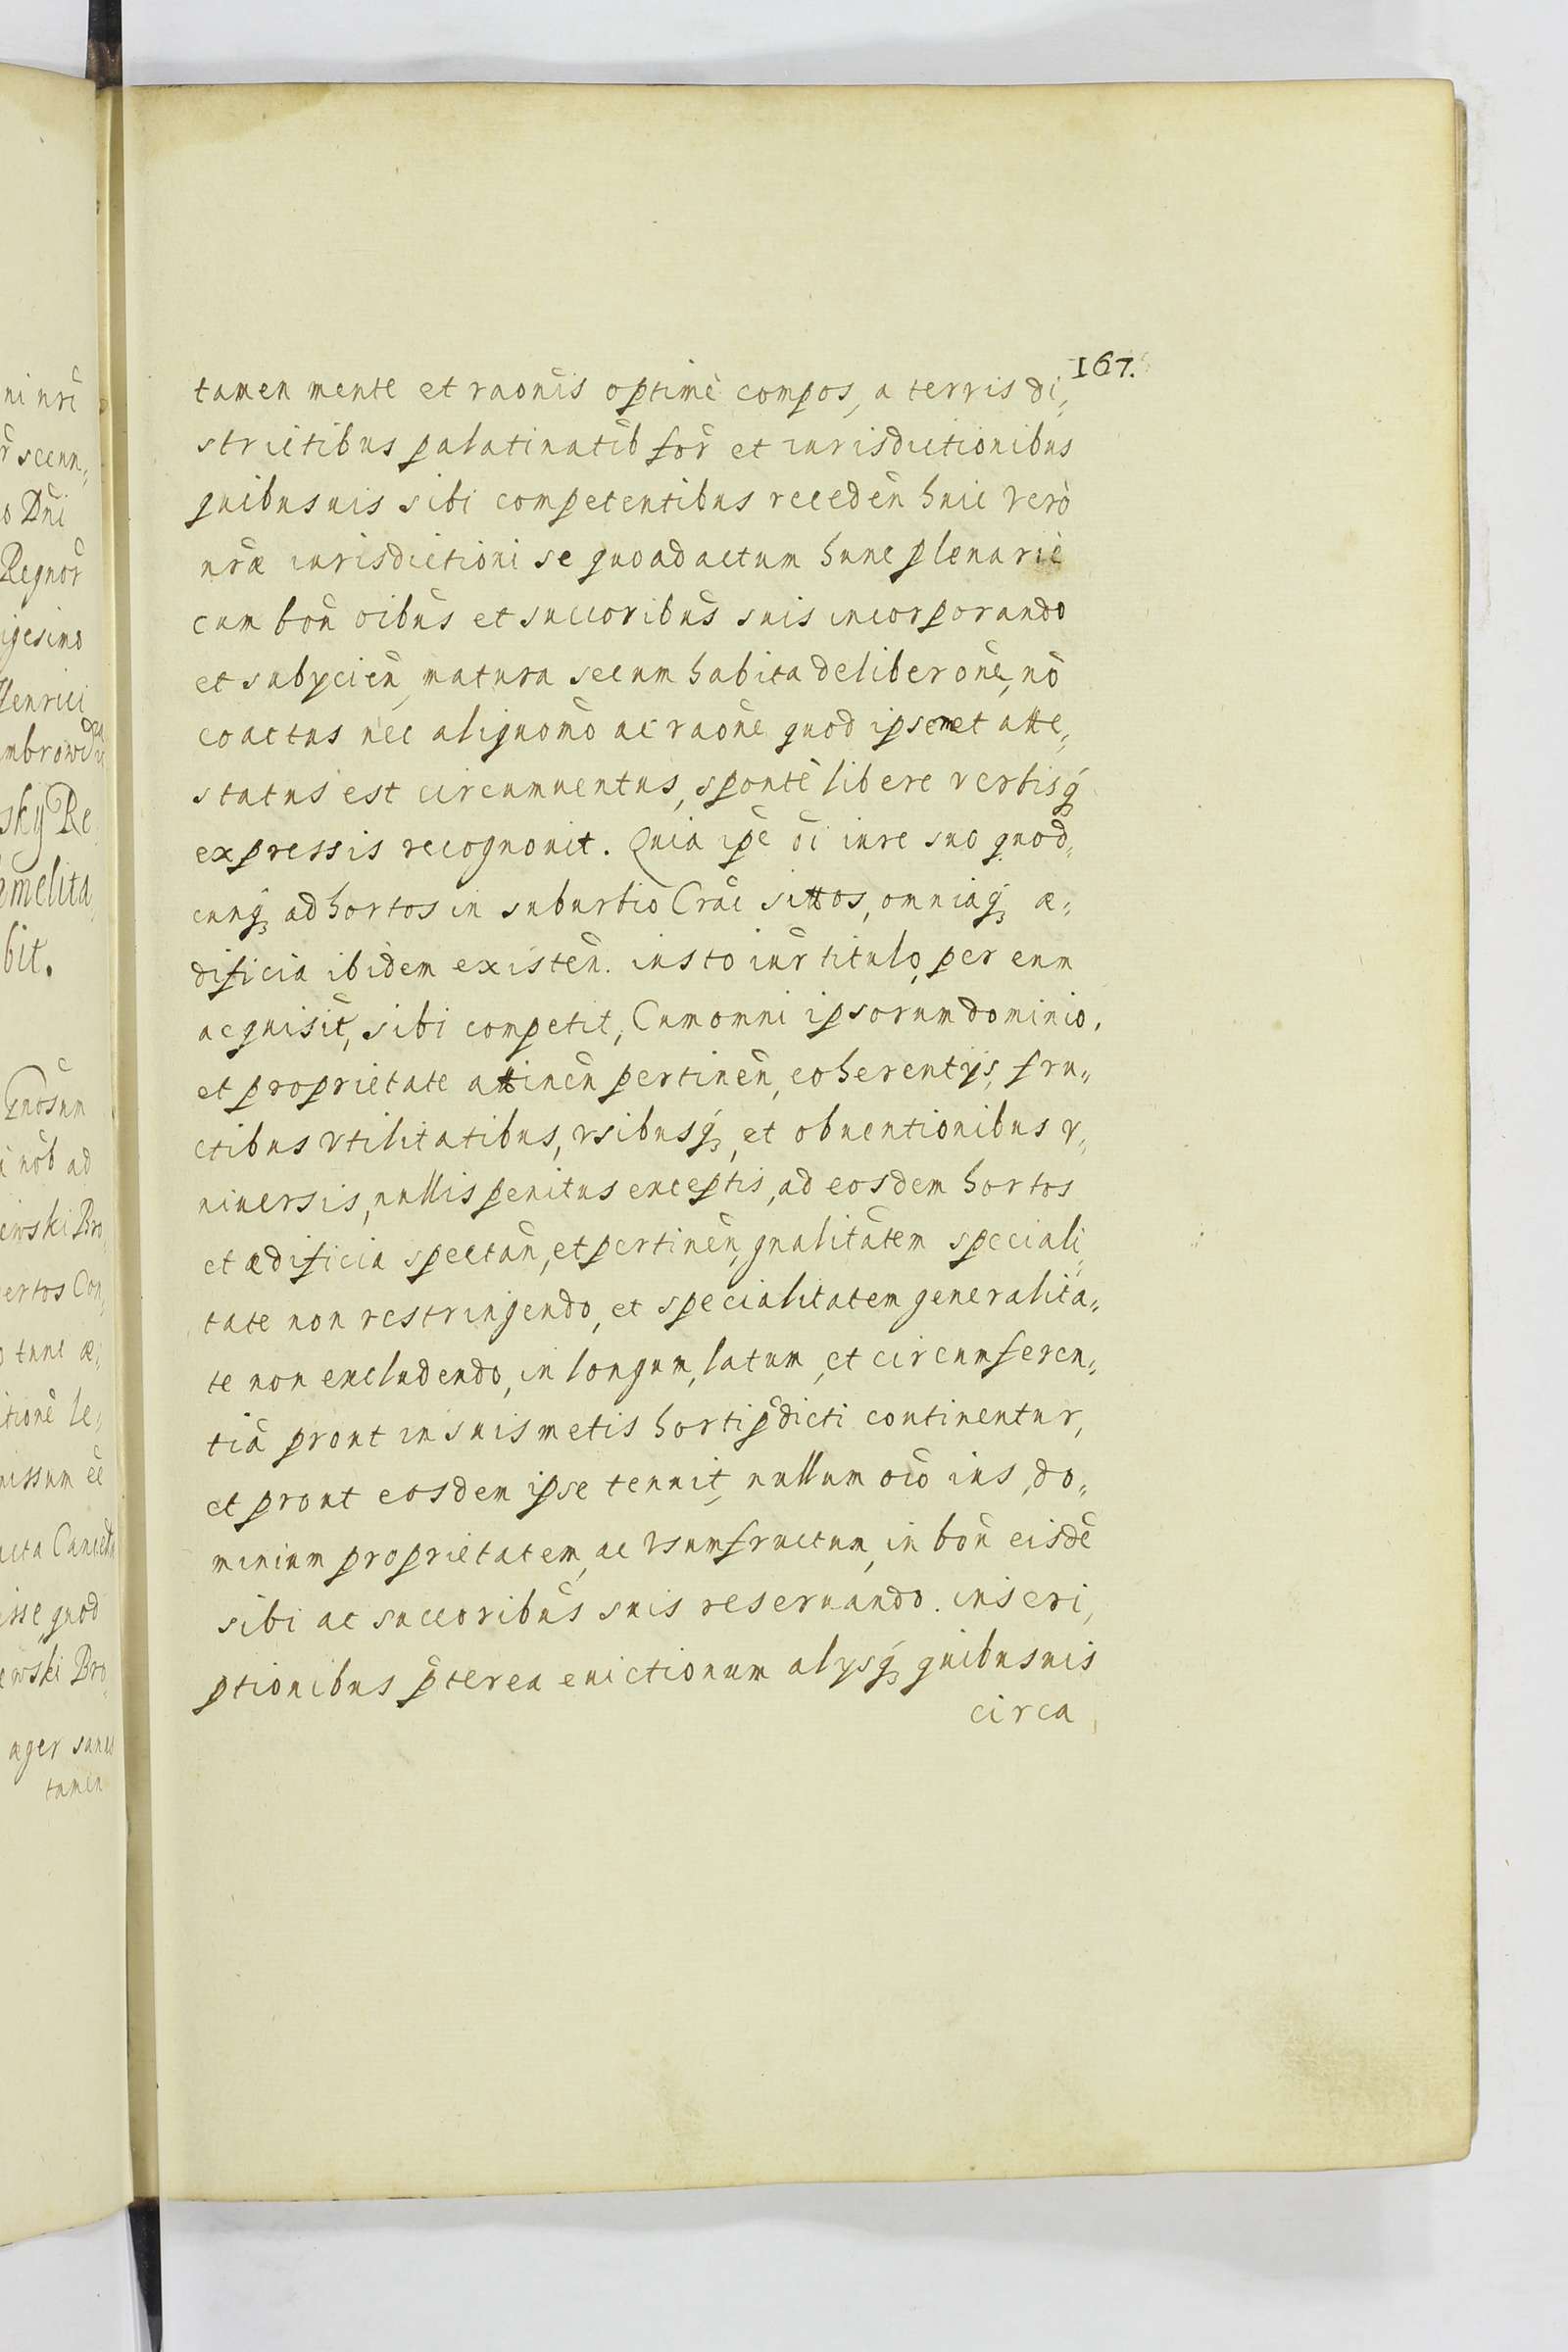 167.
tamen mente et raonis optimè compos, a terris di,,
strictibus palatinatib for et iurisdictionibus
quibusuis sibi competentibus receden huic verò
nræ iurisdictioni se quoad actum hunc plenariè
cum bon oibus et succoribus suis incorporando
et subycien, matura secum habita deliberone, nō
coactus nec aliquomo ac raone quod ipsemet atte,,
status est circumuentus, spontè libere verbisq
expressis recognouit. Quia ipe oi iure suo quod,,
cunq ad hortos in suburbio Crac sittos, omniaq æ,,
dificia ibidem existen. iusto iur titulo, per eum
acquisit, sibi competit, Cum omni ipsorum dominio,
et proprietate attinen pertinen, coherentys, fru,,
ctibus vtilitatibus, vsibusq, et obuentionibus v,,
niuersis, nullis penitus exceptis, ad eosdem hortos
et ædificia spectan, et pertinen, gnalitatem speciali,,
tate non restringendo, et specialitatem generalita,,
te non excludendo, in longum, latum, et circumferen,,
tiā prout in suis metis horti pdicti continentur,
et prout eosdem ipse tenuit, nullum oio ius, do,,
minium proprietatem, ac vsumfructum, in bon eisdē
sibi ac succoribus suis reseruando. inscri,,
ptionibus pterea euictionum alysq quibusuis
circa